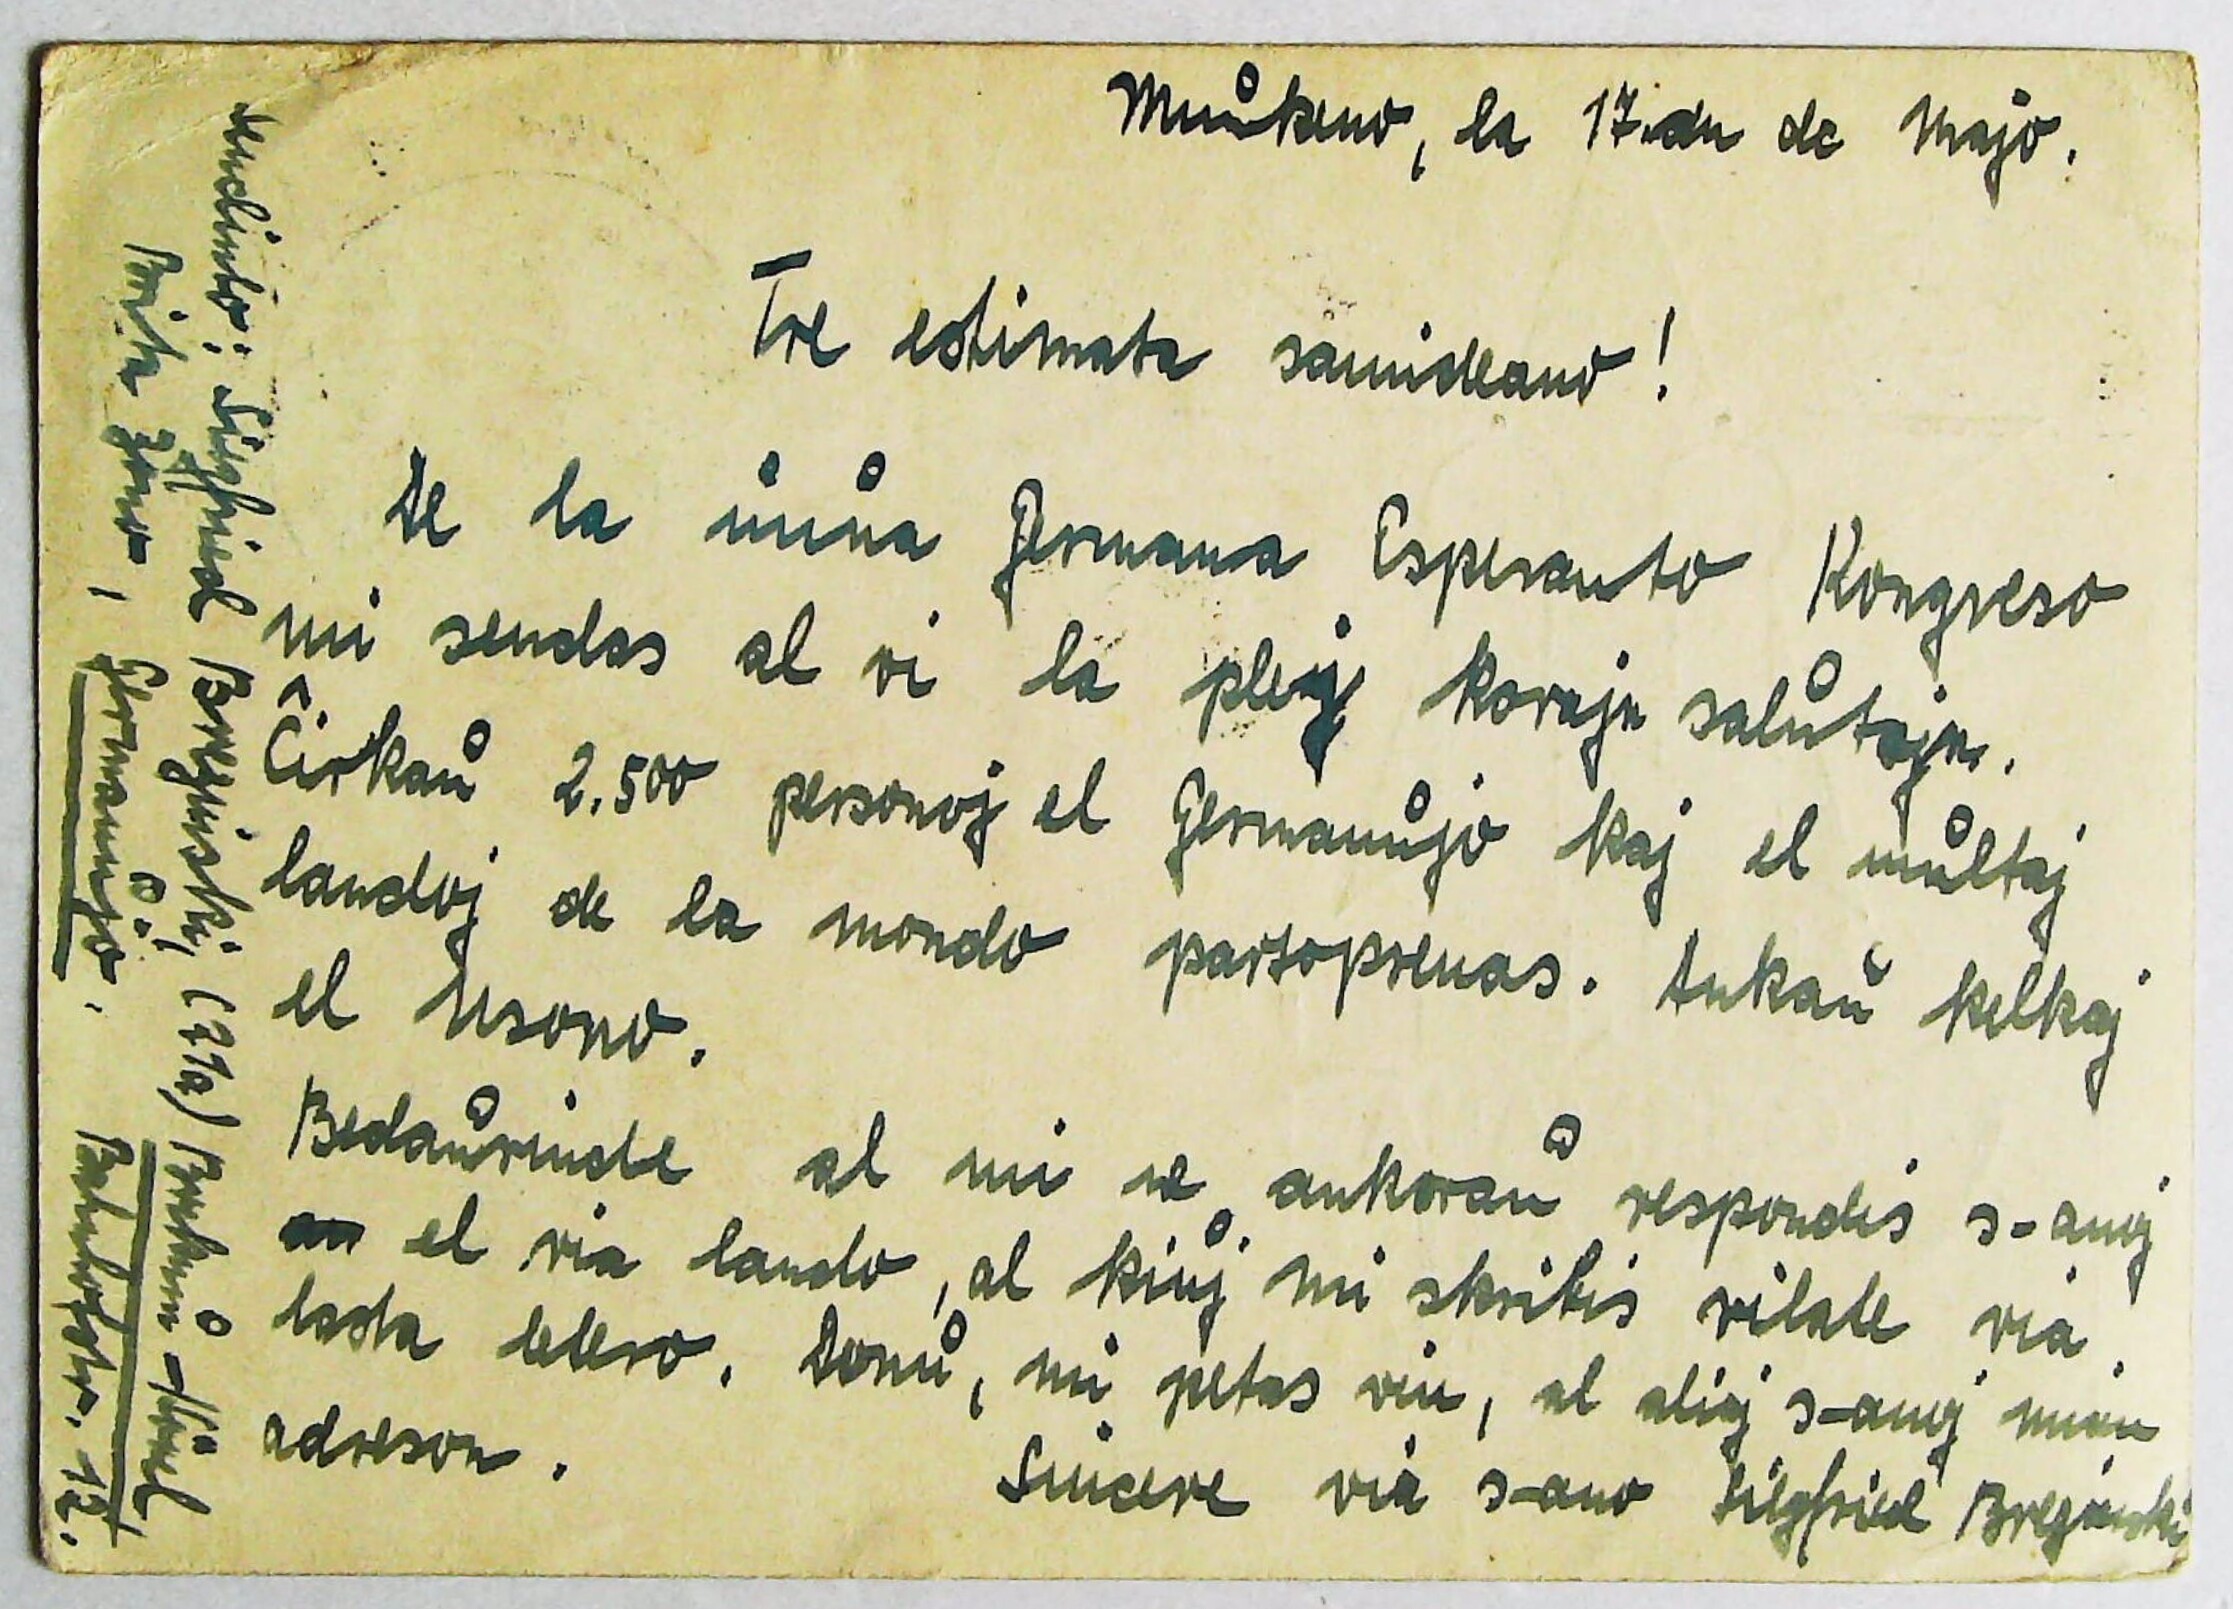 Munkeno, la 17.an de Majo.
Tre estimata samideano!
De la unua Germana Esperanto Kongreso
mi sendas al vi la plej korajn salutojn.
Ĉirkaŭ 2.500 personoj el Germanujo kaj el multaj
landoj de la mondo partoprenas. Ankaŭ kelkaj
el Usono.
Bedaŭrinde al mi ne ankoraŭ respondis s-anoj
el via lando, al kiuj mi skribis rilate via
lasta letero. Donu, mi petas vin, al aliaj s-anoj mian
adreson.
Sincere via s-ano Siegfried Breginski
sendinto: Siegfried Breginski, (21a) Beckum-
Brita Zono, Germanujo. 12.